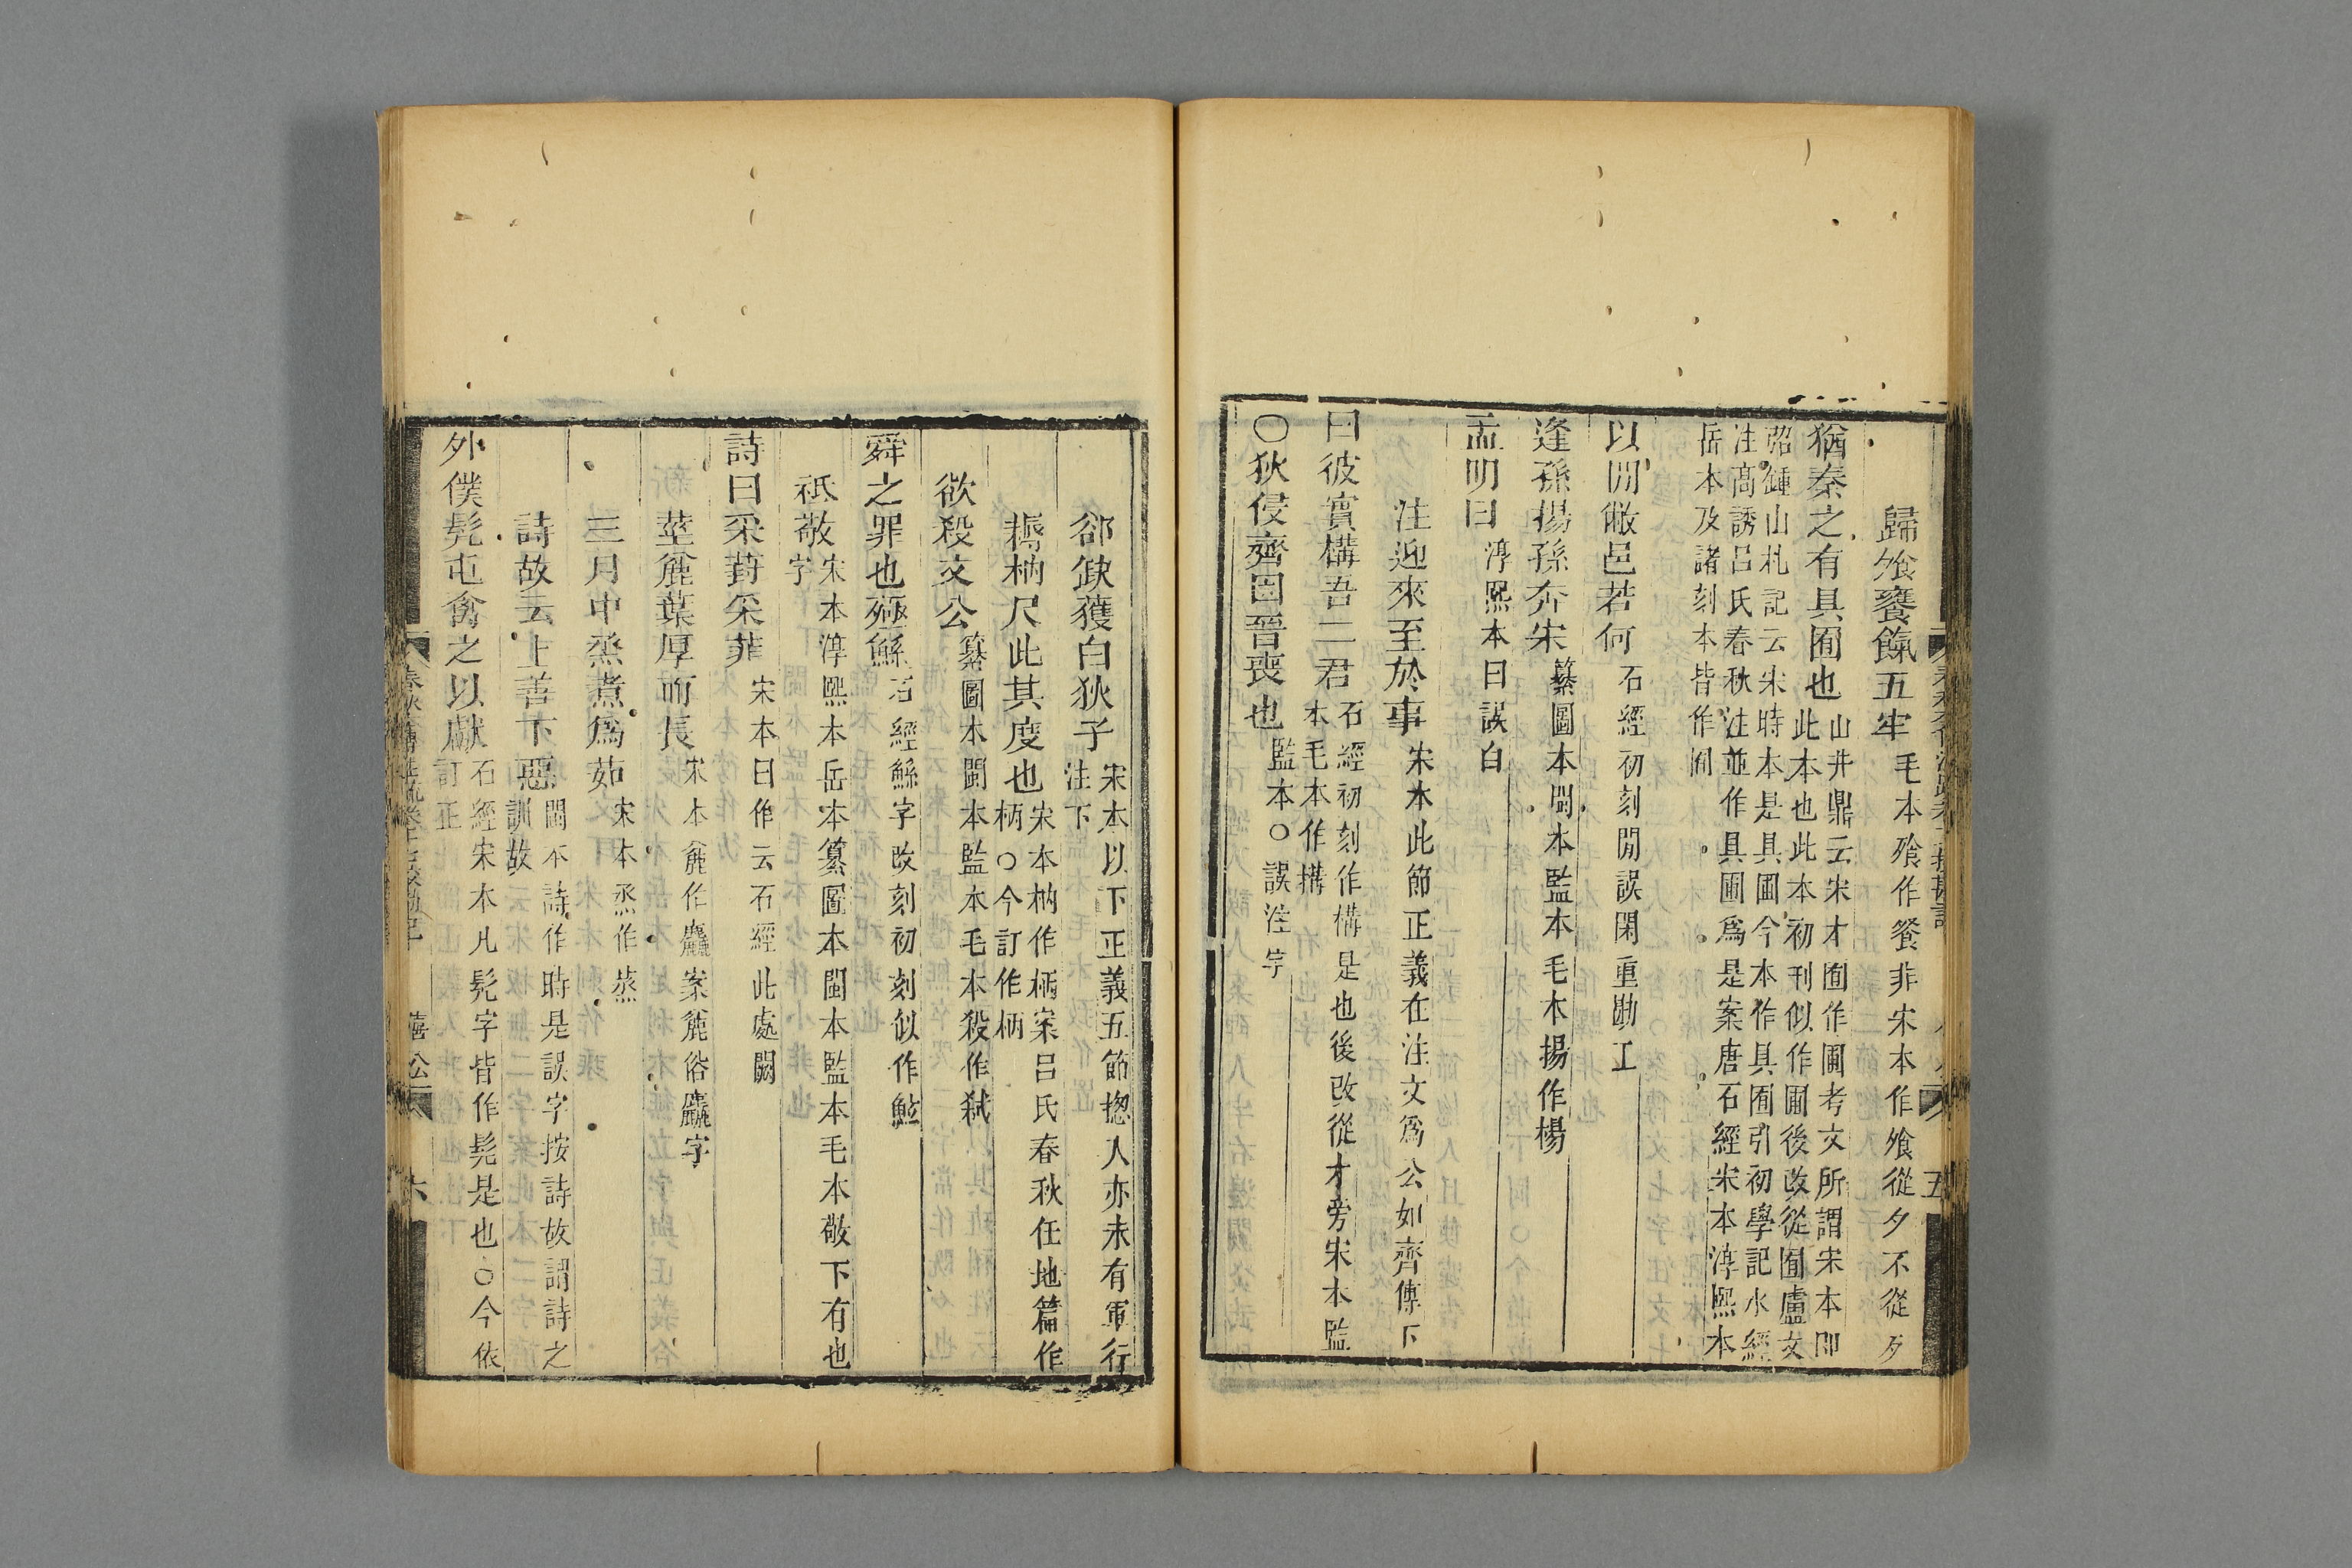 歸飧饔餼五牢毛本飱作餐非宋本作飧從夕不從歹
猶秦之有具囿也山井鼎云宋才囿作圃考文所謂宋本即
此本也此本初刊似作圃後改從囿盧文
弨鍾山札記云宋時本是具圃今本作具囿引初學記水經
注高誘呂氏春秋注並作具圃爲是案唐石經宋本淳熙本
岳本及諸刻本皆作囿
以閒敝邑若何石經初刻閒誤閑重勘工
逢孫揚孫奔宋纂圖本閩本監本毛本揚作楊
孟明曰淳熙本曰誤白
注迎來至於事宋本此節正義在注文爲公如齊傳下
曰彼實構吾二君石經初刻作構是也後改從才旁宋本監
本毛本作構
〇狄侵齊因晉喪也監本〇誤注字
郤缺獲白狄子宋本以下正義五節揔入亦未有軍行
注下
耨柄尺此其度也宋本枘作柄案呂氏春秋任地篇作
柄〇今訂作柄
欲殺文公纂圖本閩本監本毛本殺作弒
舜之罪也殛鯀石經鯀字改刻初刻似作鮌
祇敬宋本淳熙本岳本纂圖本閩本監本毛本敬下有也
字
詩曰采葑采菲宋本曰作云石經此處闕
莖麄葉厚而長宋本麄作麤案麄俗麤字
三月中烝煮爲茹宋本烝作蒸
詩故云上善下惡閩本詩作時是誤字按詩故謂詩之
訓故
外僕髠屯禽之以獻石經宋本凡髠字皆作髡是也〇今依
訂正
僖公
六
五